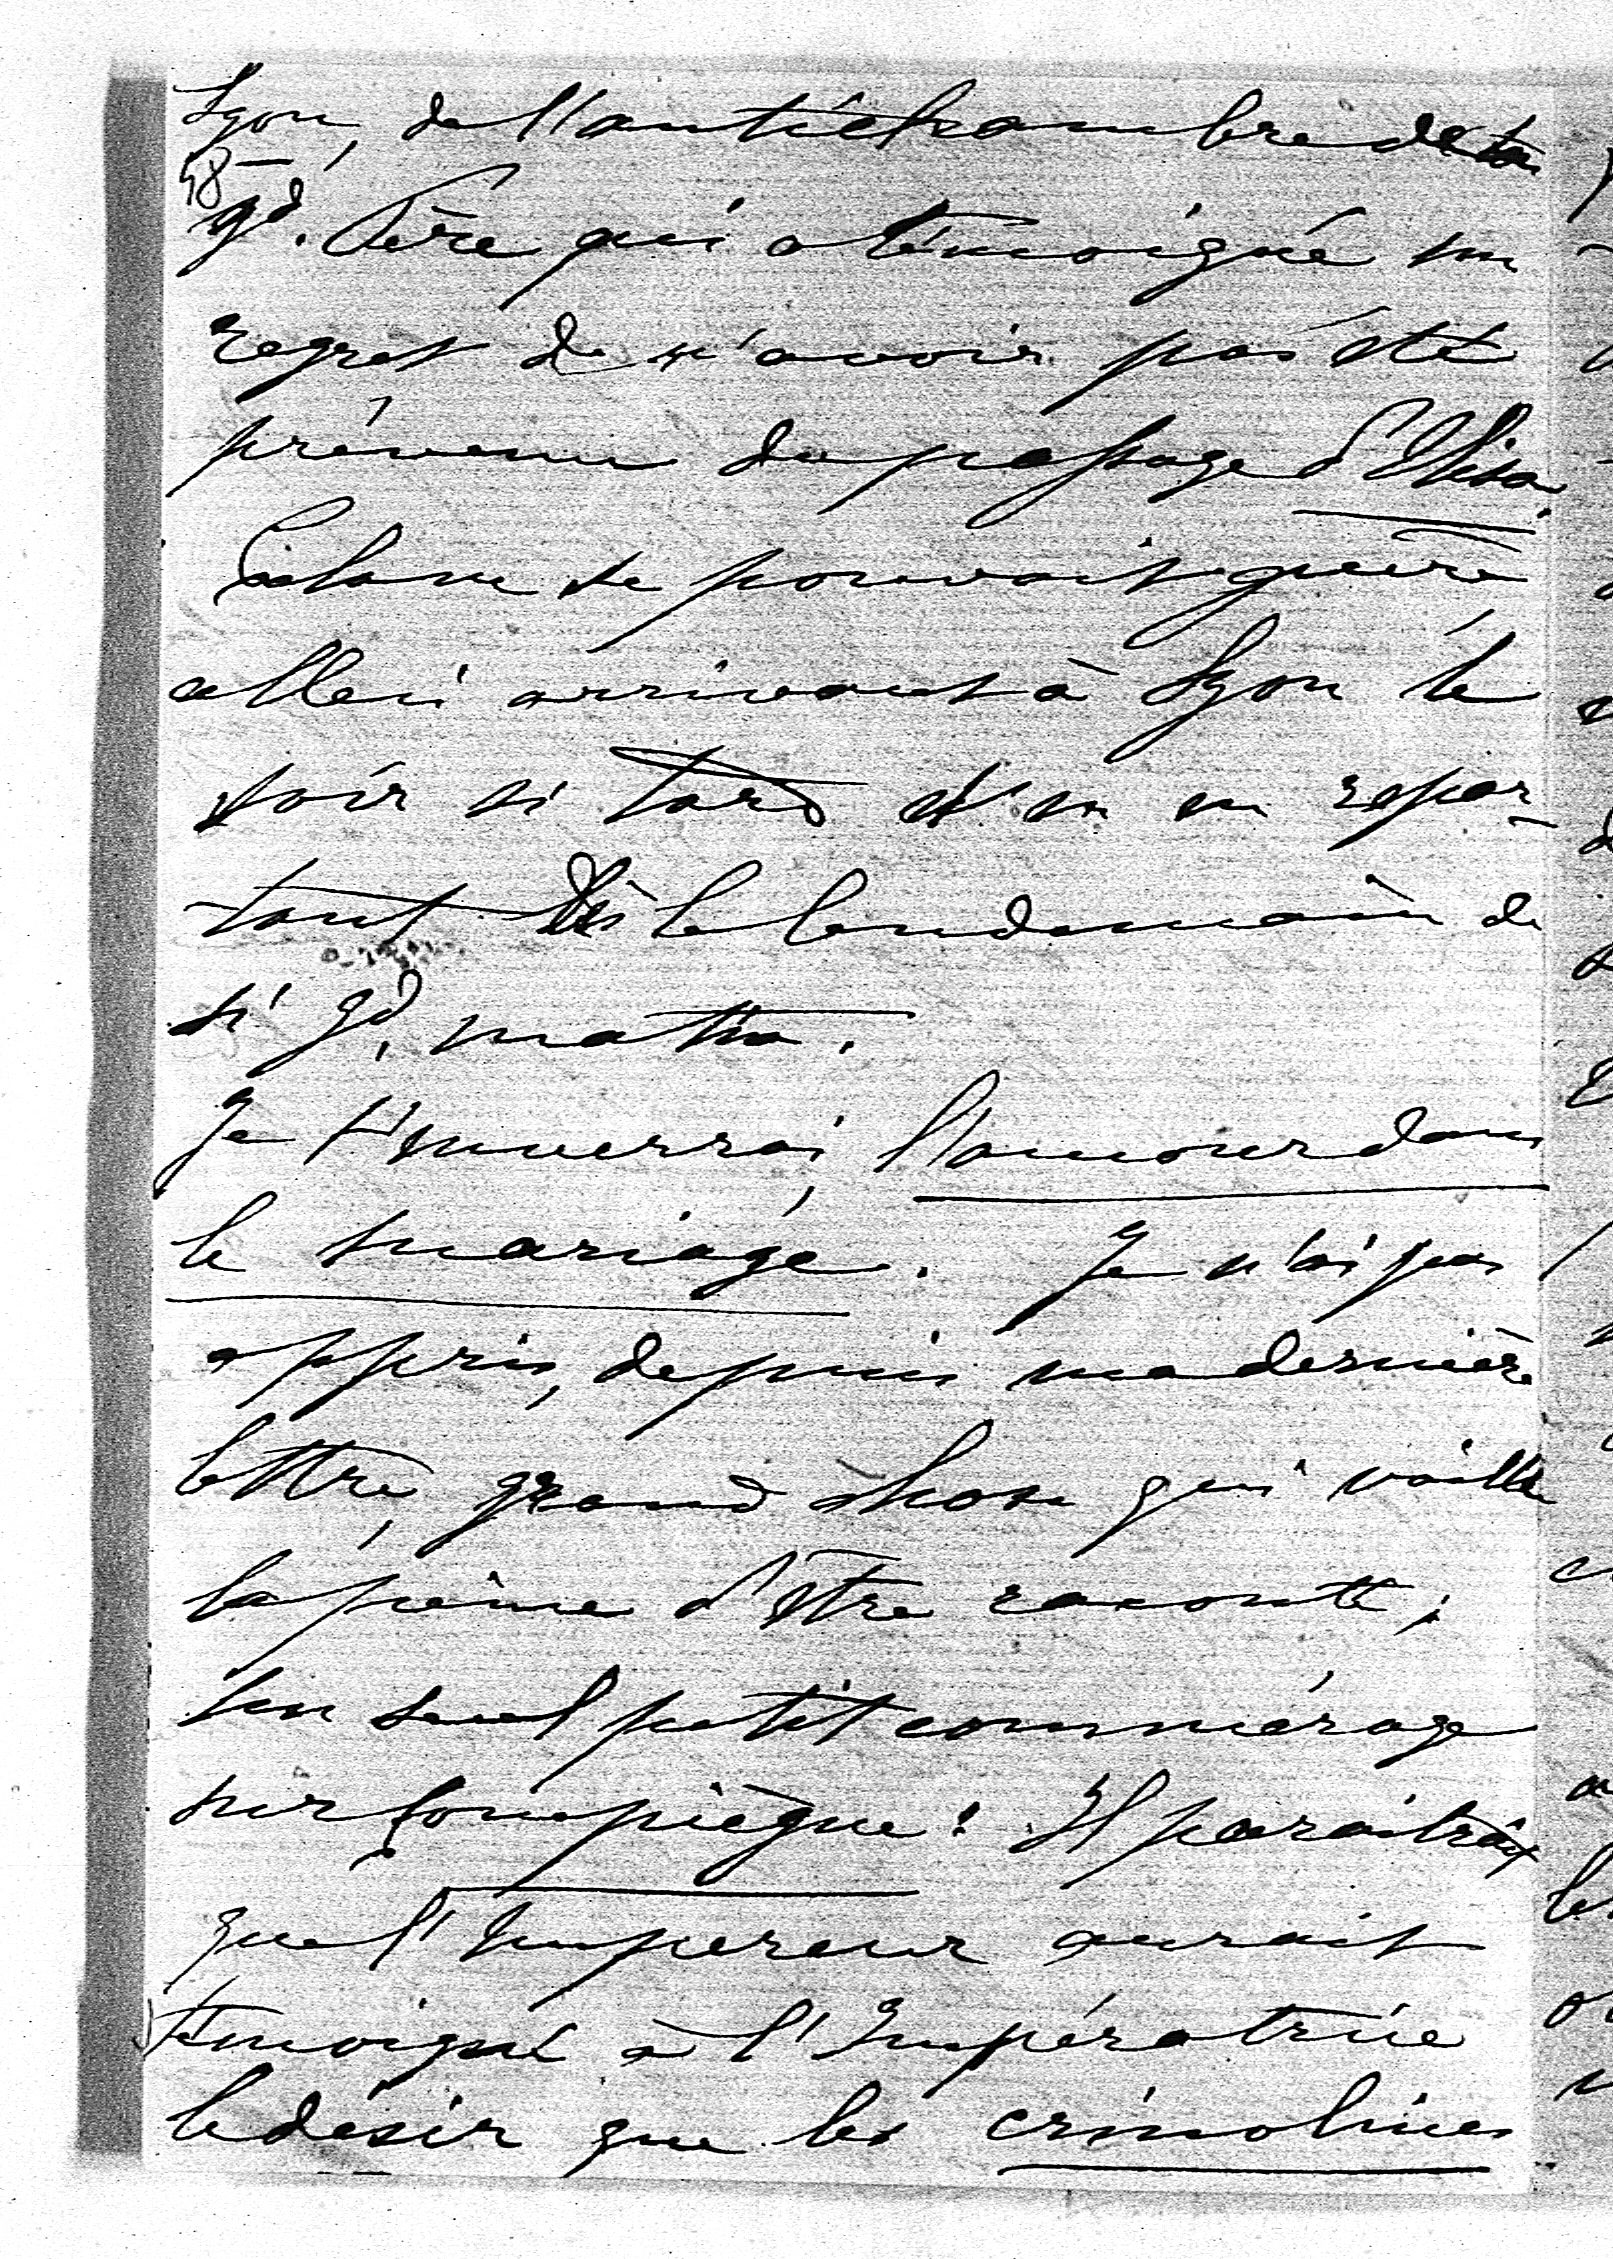 Lyon, de l'antichambre de ton
48
gd. Père qui a témoigné un
regret de n'avoir pas été
prévenu du passage d'Elisa.
Cela ne se pouvait guère
arrivant à Lyon le
soir si tard et en repar-
tant dès le lendemain de
si gd. matin.
Je t'enverrai, l'amour dans
le mariage. Je n'ai pas
appris, depuis ma dernière
lettre, grand chose qui vaille
la peine d'être raconté;
un seul petit commérage
sur Compiègne: Il paraitrait
que l'Empereur aurait
témoigné à l'Impératrice
le désir que les crinolines